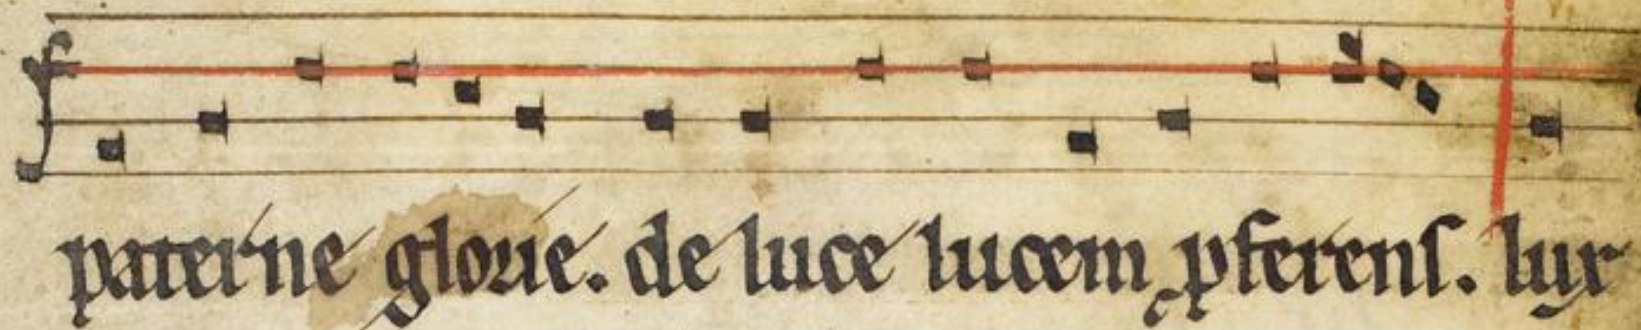 paterne glorie. de luce lucem ꝓferens. lux